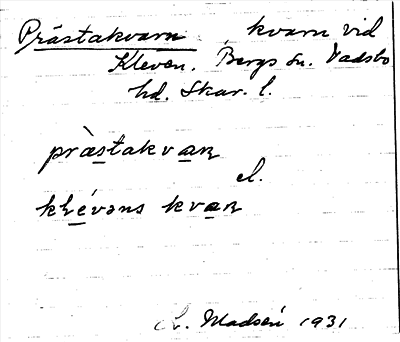 Prästakvarn kvarn vid
Kleven. Bergs sn. Vadsbo
hd. Skar. l.
præ̀stakvaɳ
el.
kɫévəns kvaɳ
L. Madsén 1931